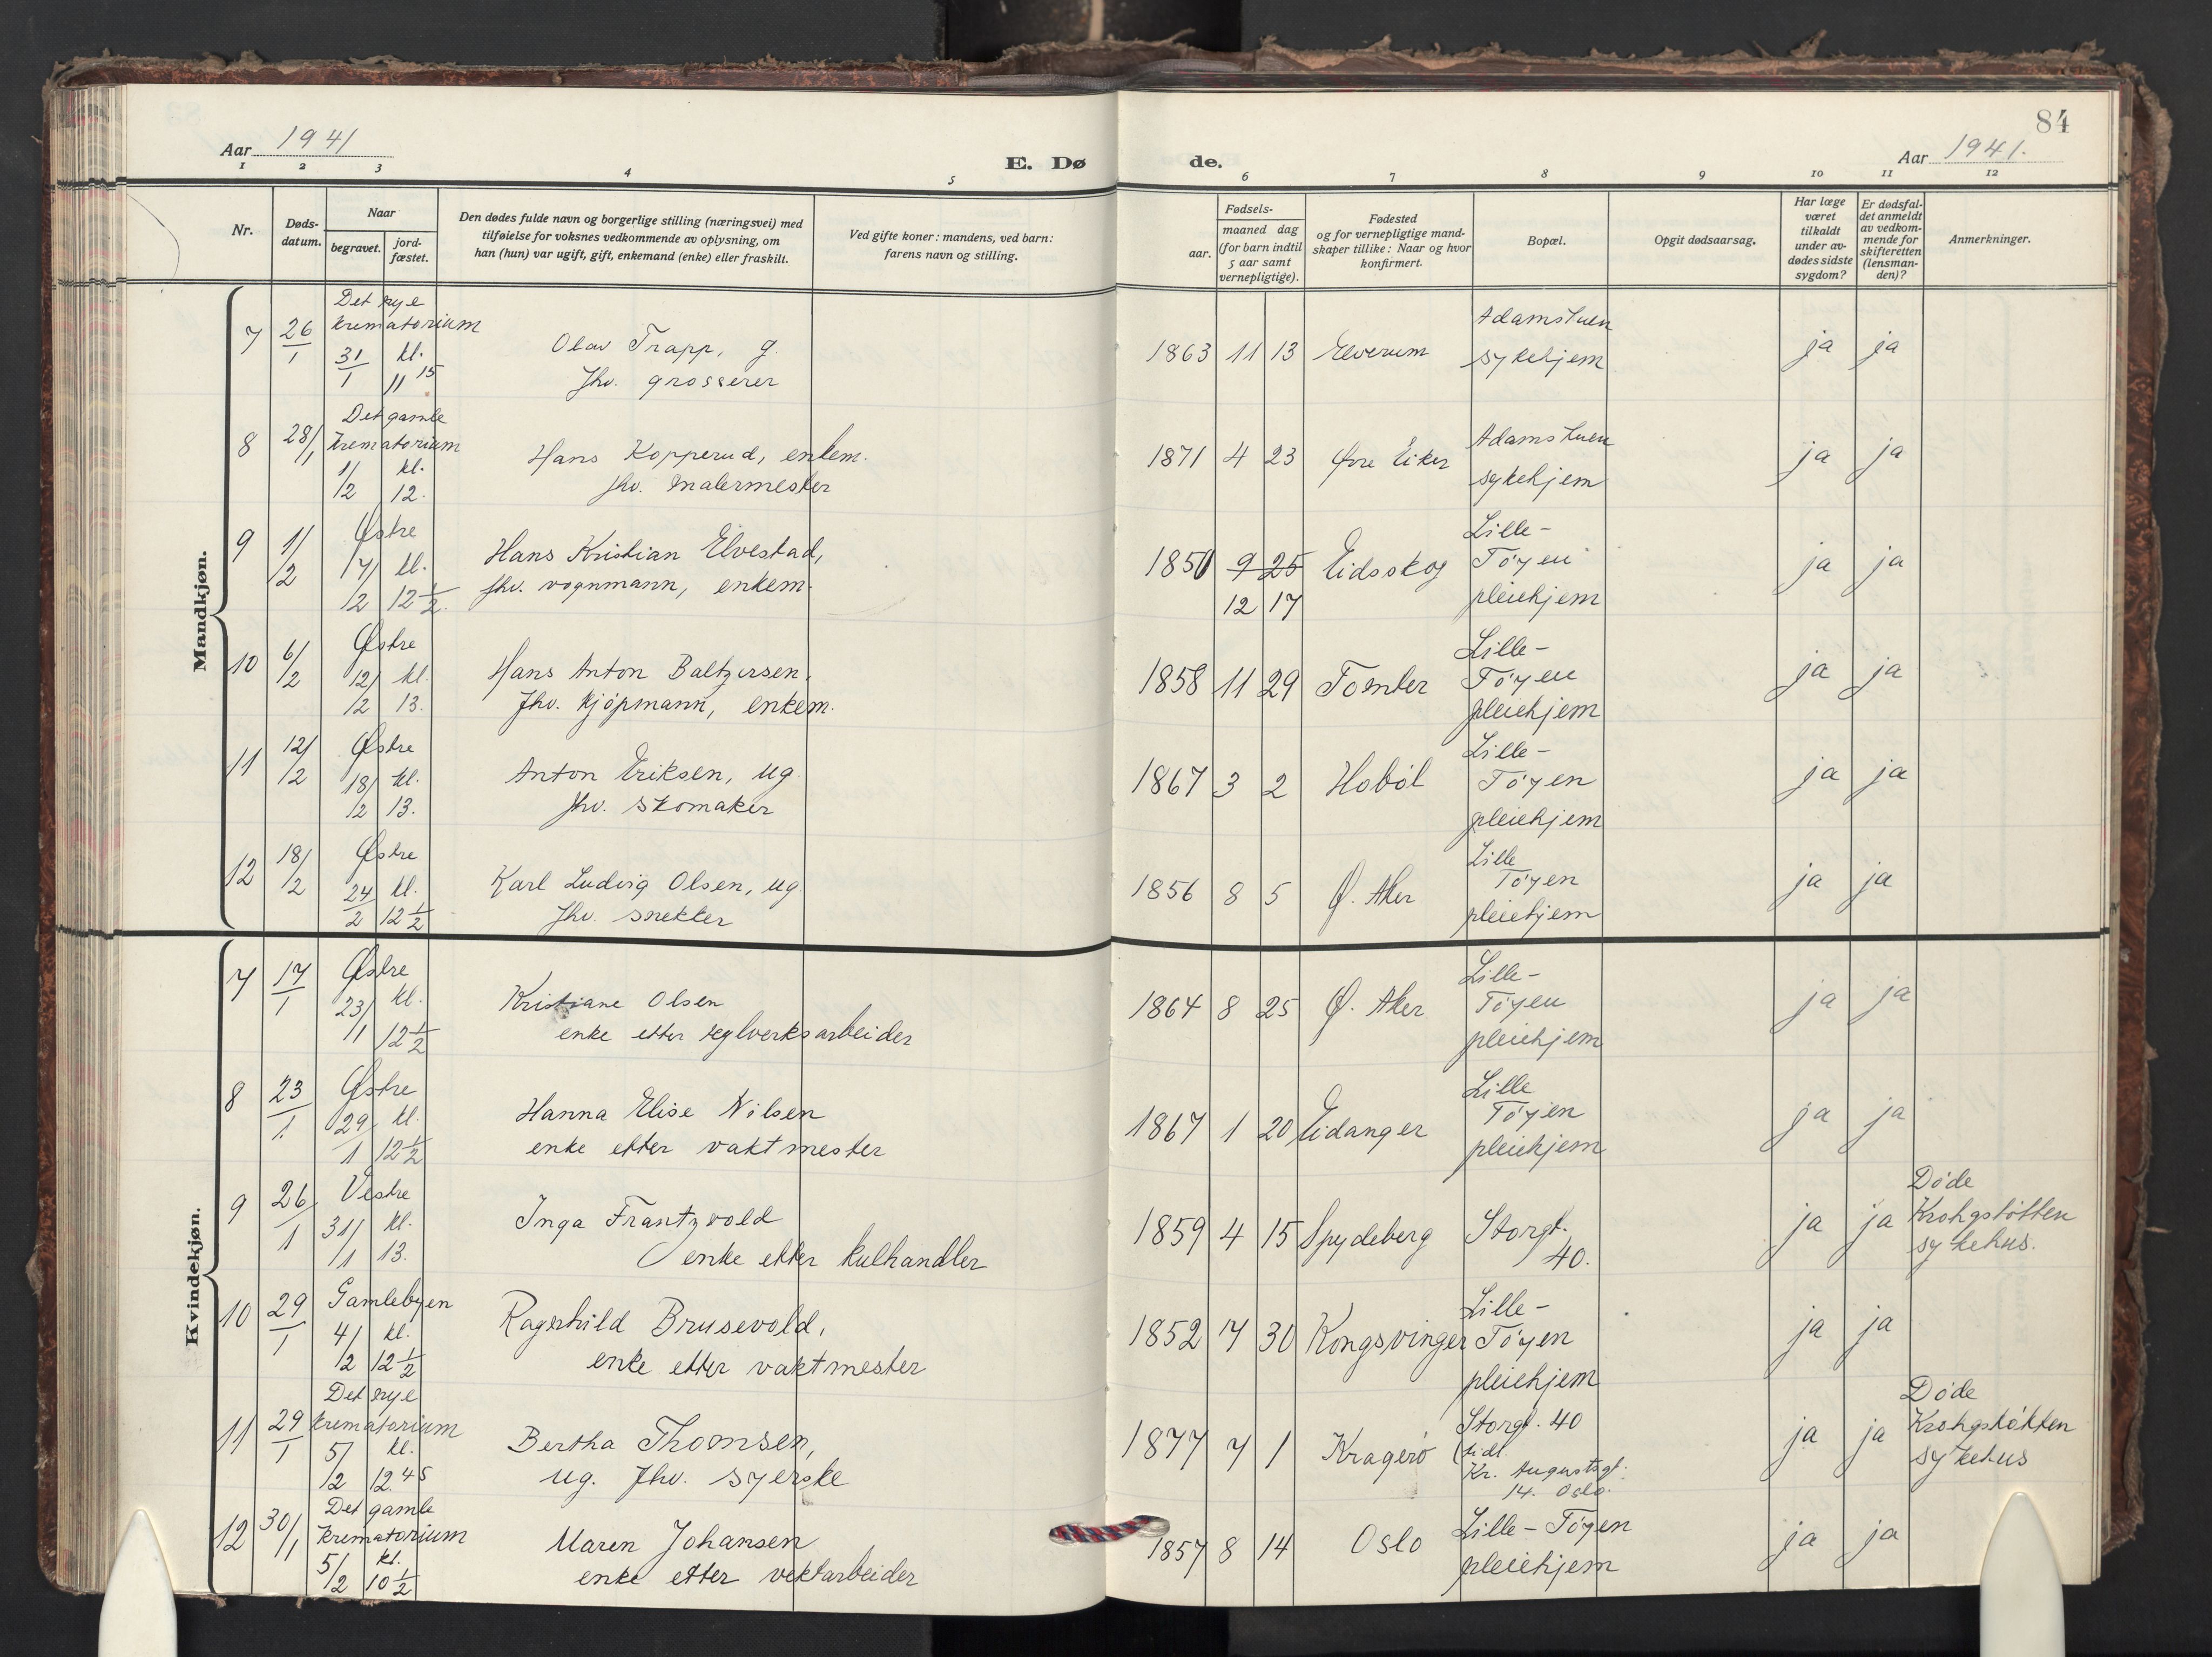 84
Aar 1941
E. Dø
de.
Aar 1941.
1 2 3 4 5 6 7 8 9 10 11 12
Nr.
Døds-
datum.
Naar
begravet.
jord-
fæstet.
Den dødes fulde navn og borgerlige stilling (næringsvei) med
tilføielse for voksnes vedkommende av oplysning, om
han (hun) var ugift, gift, enkemand (enke) eller fraskilt.
Ved gifte koner: mandens, ved barn:
farens navn og stilling.
Fødsels-
aar.
maaned dag
(for barn indtil
5 aar samt
vernepligtige).
Fødested
og for vernepligtige mand-
skaper tillike: Naar og hvor
konfirmert.
Bopæl.
Opgit dødsaarsag.
Har læge
været
tilkaldt
under av-
dødes sidste
sygdom?
Er dødsfal-
det anmeldt
av vedkom-
mende for
skifteretten
(lensman-
den)?
Anmerkninger.
Mandkjøn.
7 26/1
Det nye
krematorium
31/1 kl. 11 15
Olav Trapp, g.
fhv. grosserer
1863 11 13 Elverum
Adamstuen
sykehjem
ja ja
8 28/1
Det gamle
krematorium
1/2 kl. 12.
Hans Kopperud, enkem.
fhv. malermester
1871 4 23 Øvre Eiker
Adamstuen
sykehjem
ja ja
9 1/2
Østre
7/2 kl. 12 1/2.
Hans Kristian Elvestad,
fhv. vognmann, enkem.
1850 9 25 Eidsskog
12 17
Lille-
Töyen
pleiehjem
ja ja
10 6/2
Østre
12/2 kl. 13.
Hans Anton Baltzersen,
Fhv. kjøpmann, enkem.
1858 11 29 Tomter
Lille-
Töyen
pleiehjem
ja ja
11 12/2
Østre
18/2 kl. 13.
Anton Eriksen, ug.
fhv. skomaker
1867 3 2 Hoböl
Lille-
Töyen
pleiehjem
ja ja
12 18/2
Østre
24/2 kl. 12 1/2
Karl Ludvig Olsen, ug.
fhv. snekker
1856 8 5 Ø. Aker
Lille
Töyen
pleiehjem
ja ja
Kvindekjøn.
7 17/1
Østre
23/1 kl. 12 1/2
Kristiane Olsen
enke etter teglverksarbeider
1864 8 25 Ø. Aker
Lille-
Töyen
pleiehjem
ja ja
8 23/1.
Østre
29/1 kl. 12 1/2
Hanna Elise Nilsen
enke etter vaktmester
1867 1 20 Eidanger
Lille
Töyen
pleiehjem
ja ja
9 26/1
Vestre
31/1 kl. 13.
Inga Frantzvold
enke etter kulhandler
1859 4 15 Spydeberg
Storgt.
40.
ja ja
Döde
Krohgstötten
sykehus.
10 29/1
Gamlebyen
4/2 kl. 12 1/2
Ragnhild Brusevold,
enke etter vaktmester
1852 7 30 Kongsvinger
Lille-
Töyen
pleiehjem
ja ja
11 29/1
Det nye
krematorium
5/2 kl. 12.45
Bertha Thomsen,
ug. fhv. syerske
1877 7 1 Kragerö
Storgt. 40
(tidl.
Kr. Augustsgt.
14. Oslo.
ja ja
Döde
Krohgstötten
sykehus
12 30/1
Det gamle
krematorium
5/2 kl. 10 1/2
Maren Johansen
enke etter vektarbeider
1857 8 14 Oslo
Lille-Töyen
pleiehjem
ja ja